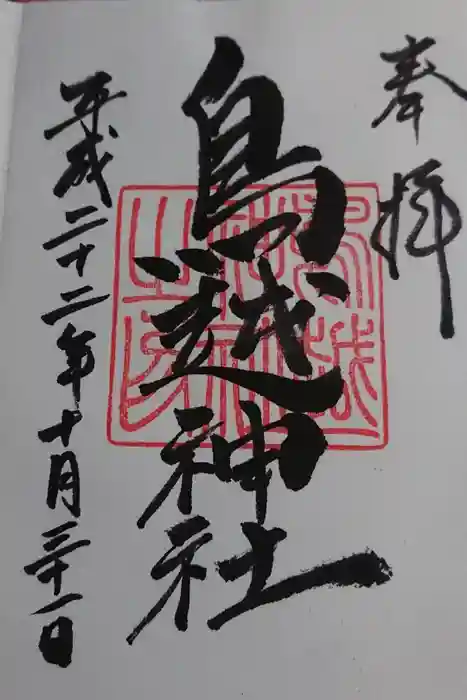 奉拝
鳥越神社
平成二十二年十月三十一日